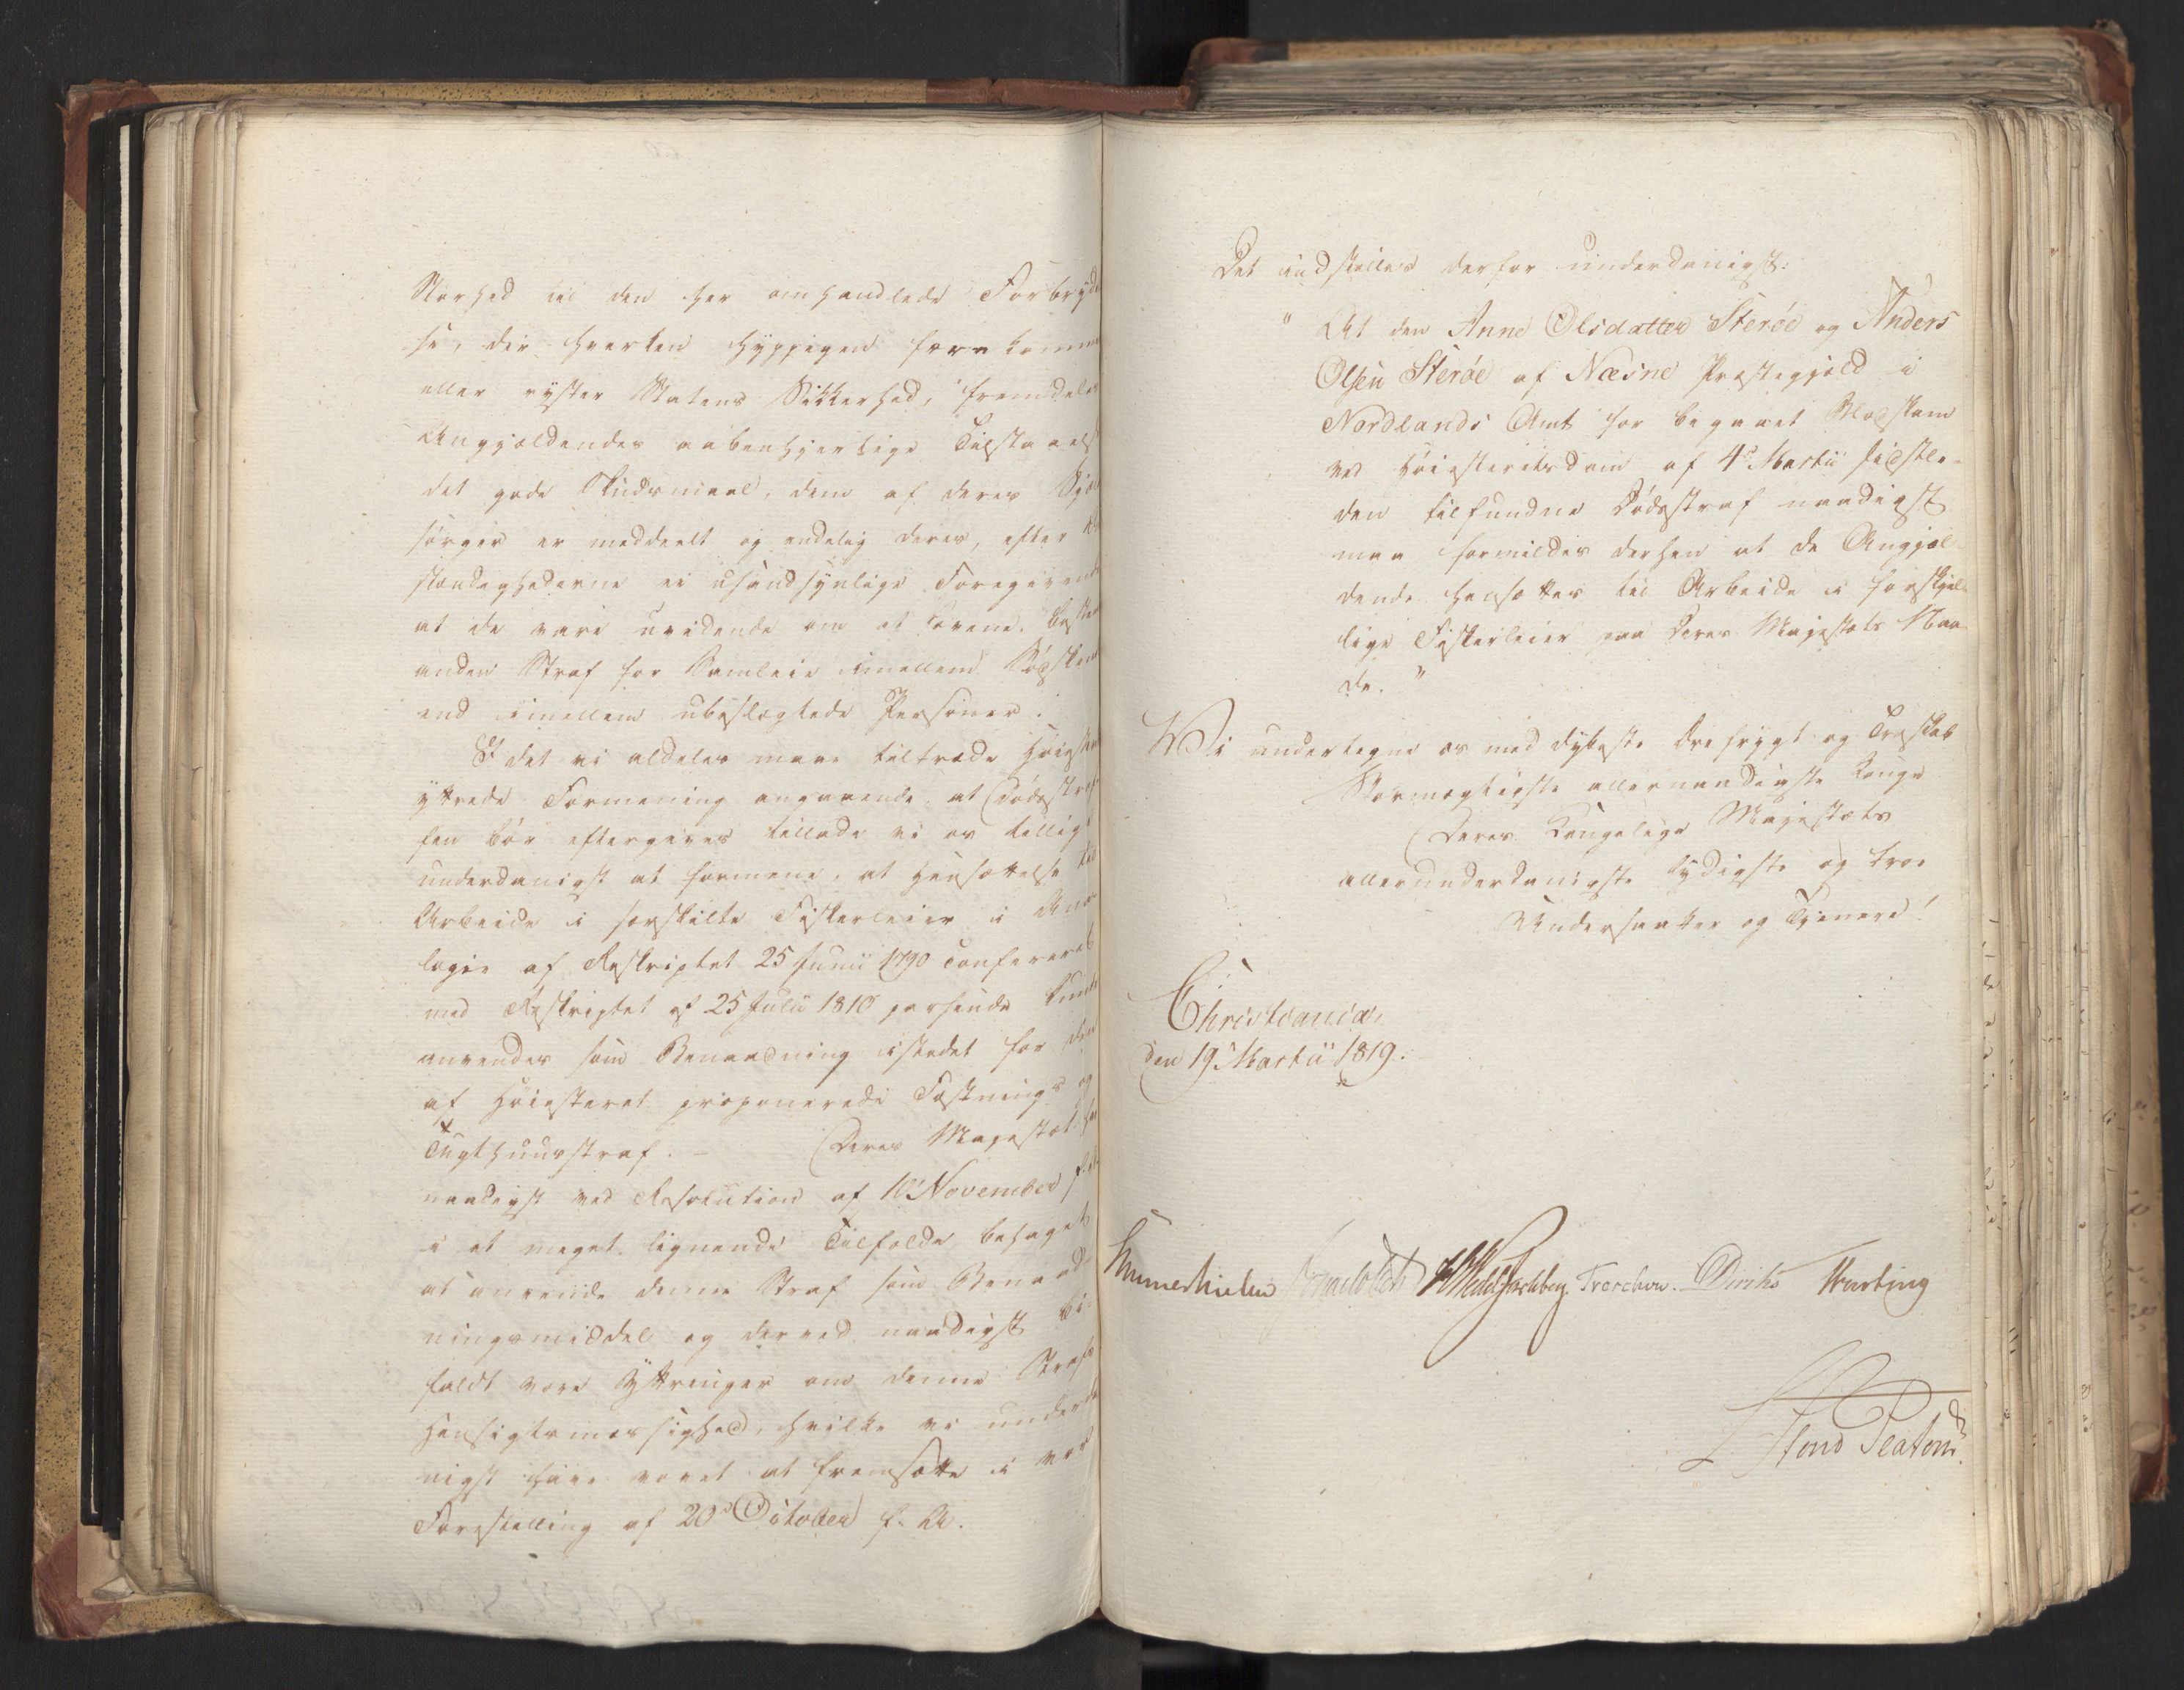 Storhed til den her omhandlede Forbryd
se, der hverken hyppigen forekomme
eller ryster Statens Sikkerhed, fremdeles
Angjældendes aabenhjertige Tilstaaels
det gode Skudsmaal, dem af deres Sjæl
sørger er meddeelt og endelig deres, efter 
stændighederne ei usandsynlige Foregivende
at de vare uvidende om at Lovene 
anden Straf for Samleie imellem Sødsken
end imellem ubeslægtede Personer.
I det vi aldeles maae tiltræde Høieste
yttrede Formening angaaende, at Dødsstraf
fen bør eftergives tillade vi os tillige
underdanigst at formene, at Hensættelse til
Arbeide i særskilte Fiskerleier i Ana
logie af Reskriptet 25 Junii 1790 confereret
med Reskriptet af 25 Julii 1810 passende kunde
anvendes som Benaadning istedet for den
af Høiesteret proponerede Fæstnings og
Tugthuusstraf. - Deres Majestæt har
naadigst ved Resolution af 10 November f. A.
i et meget lignende Tilfælde behaget
at anvende denne Straf som Benaad
ningsmiddel og derved naadigst bi-
faldt vore Yttringer om denne Strafs
Hensigtsmæssighed, hvilke vi underda
nigst have vovet at fremsætte i vor
Forestilling af 20 October f. A.
Det indstilles derfor underdanigst:
" At den Anne Olsdatter Sterøe og Anders
Olsen Sterøe af Næsne Præstegjæld i
Nordlands Amt for begaaet Blodskam
ved Høiesteretsdom af 4 Martii sidstle-
den tilfundne Dødsstraf naadigst
maa formildes derhen at de Angjæl
dende hensættes til Arbeide i forskjel-
lige Fiskerleier paa Deres Majestæts Naa
de. "
Vi undertegne os med dybeste Ærefrygt og Troskab
Stormægtigste allernaadigste Konge
Deres Kongelige Majestæts
allerunderdanigste lydigste og troe
Undersaatter og Tjenere!
Christiania,
den 19 Martii 1819.
Sommerhielm Wedel Jarlsberg. Treschow. Diriks Hasting